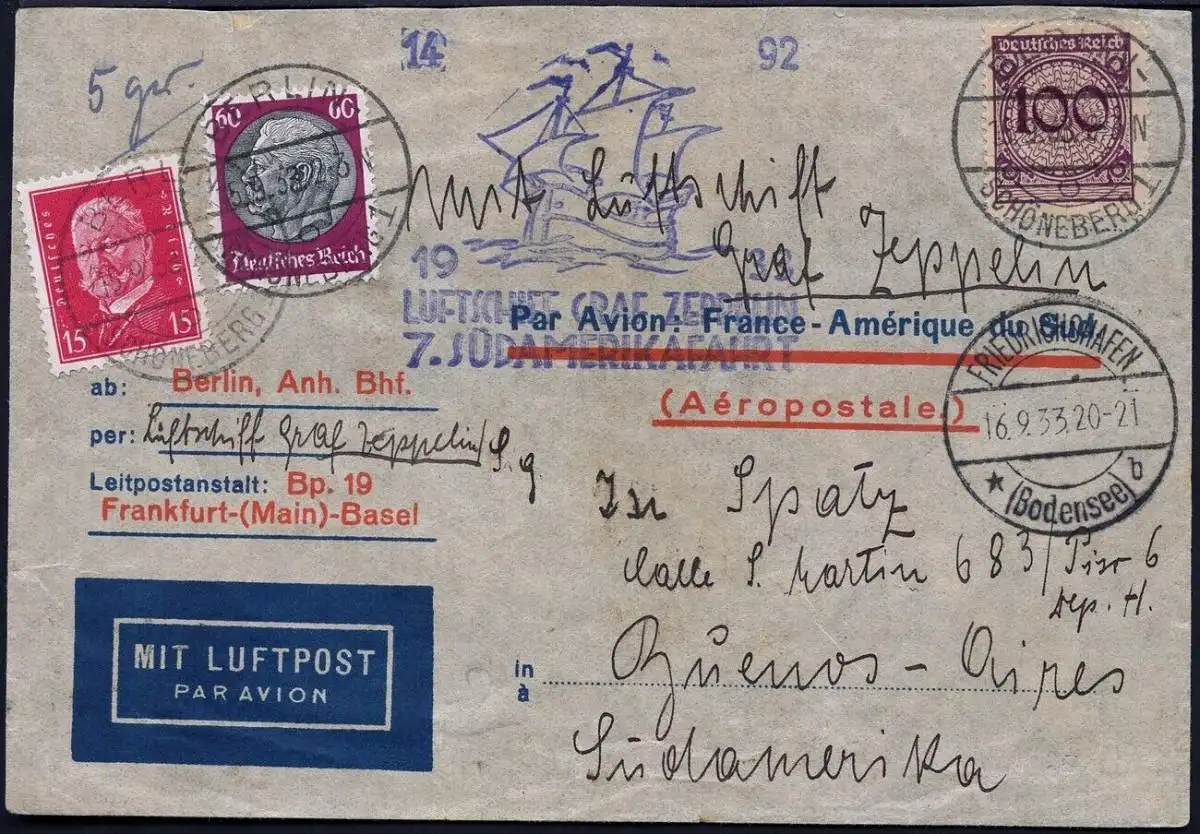 14 92
5 gr.
60 60
Deutsches Reich
Deutsches Reich
15 15
Deutsches Reich
100
BERLIN
SCHÖNEBERG 1
Mit Luftschiff
Graf Zeppelin
1933
LUFTSCHIFF GRAF ZEPPELIN
7. SÜDAMERIKAFAHRT
Par Avion: France-Amérique du Sud
(Aéropostale.)
FRIEDRICHSHAFEN
16.9.33.20-21
(Bodensee) b
ab: Berlin, Anh. Bhf.
per: Luftschiff Graf Zeppelin
Leitpostanstalt: Bp. 19
Frankfurt-(Main)-Basel
Spatz
Calle S. Martin 683/Piso 6
Dep. H.
MIT LUFTPOST
PAR AVION
in
à
Buenos-Aires
Südamerika